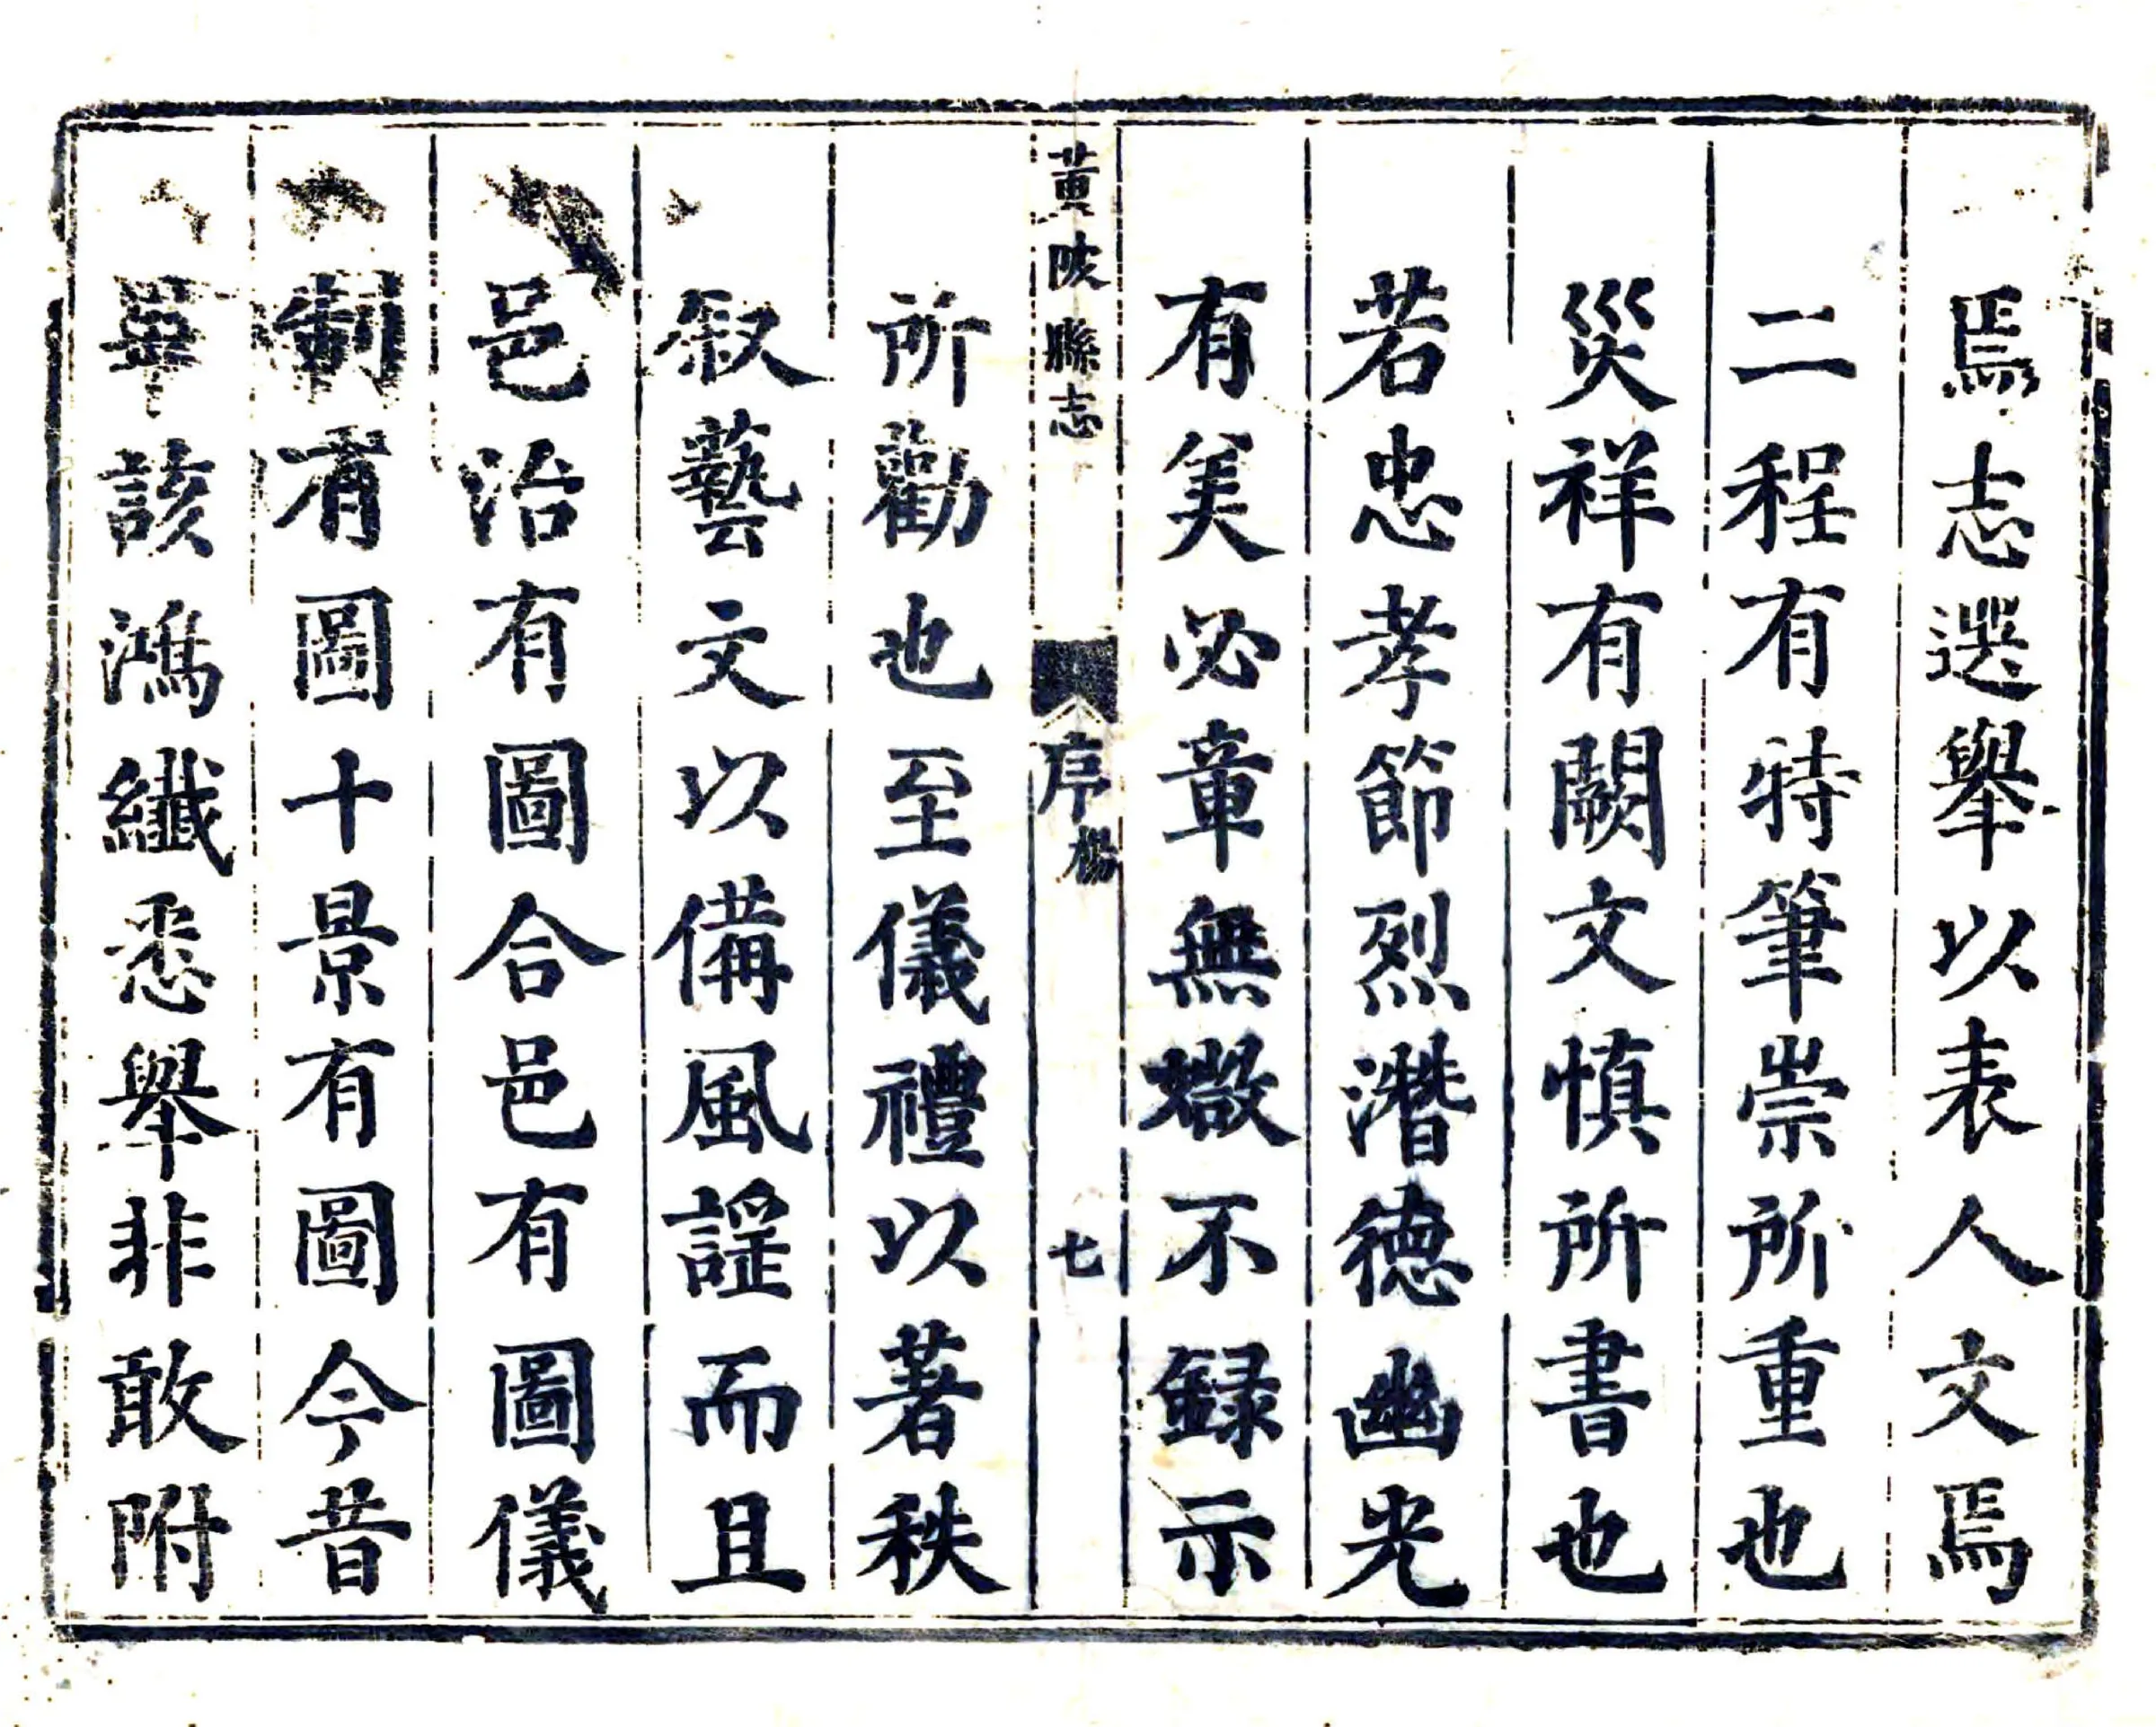 焉志選舉以表人文焉
二程有特筆崇所重也
災祥有闕文慎所書也
若忠孝節烈潛德幽光
有美必章無媺不録示
黃陂縣志
序楊
七
所勸也至儀禮以著秩
叙藝文以備風謡而且
邑治有圖合邑有圖儀
制有圖十景有圖今昔
畢該鴻纖悉舉非敢附